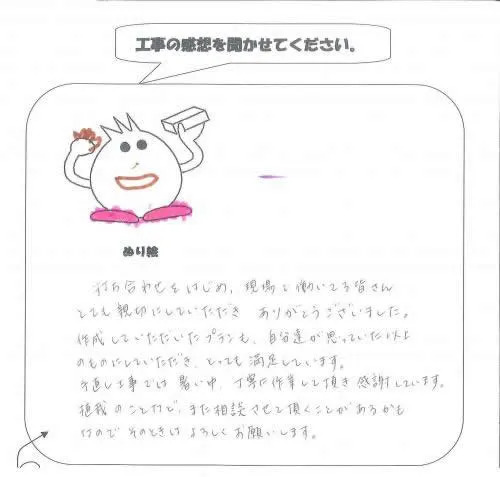 工事の感想を聞かせてください。
ぬり絵
打ち合わせをはじめ、現場で働いてる皆さん
とても親切にしていただき ありがとうございました。
作成していただいたプランも、自分達が思っていた以上
のものにしていただき、とっても満足しています。
手直し工事では 暑い中、丁寧に作業して頂き 感謝しています。
植栽のことなどで、また相談させて頂くことがあるかも
なので そのときは よろしくお願いします。